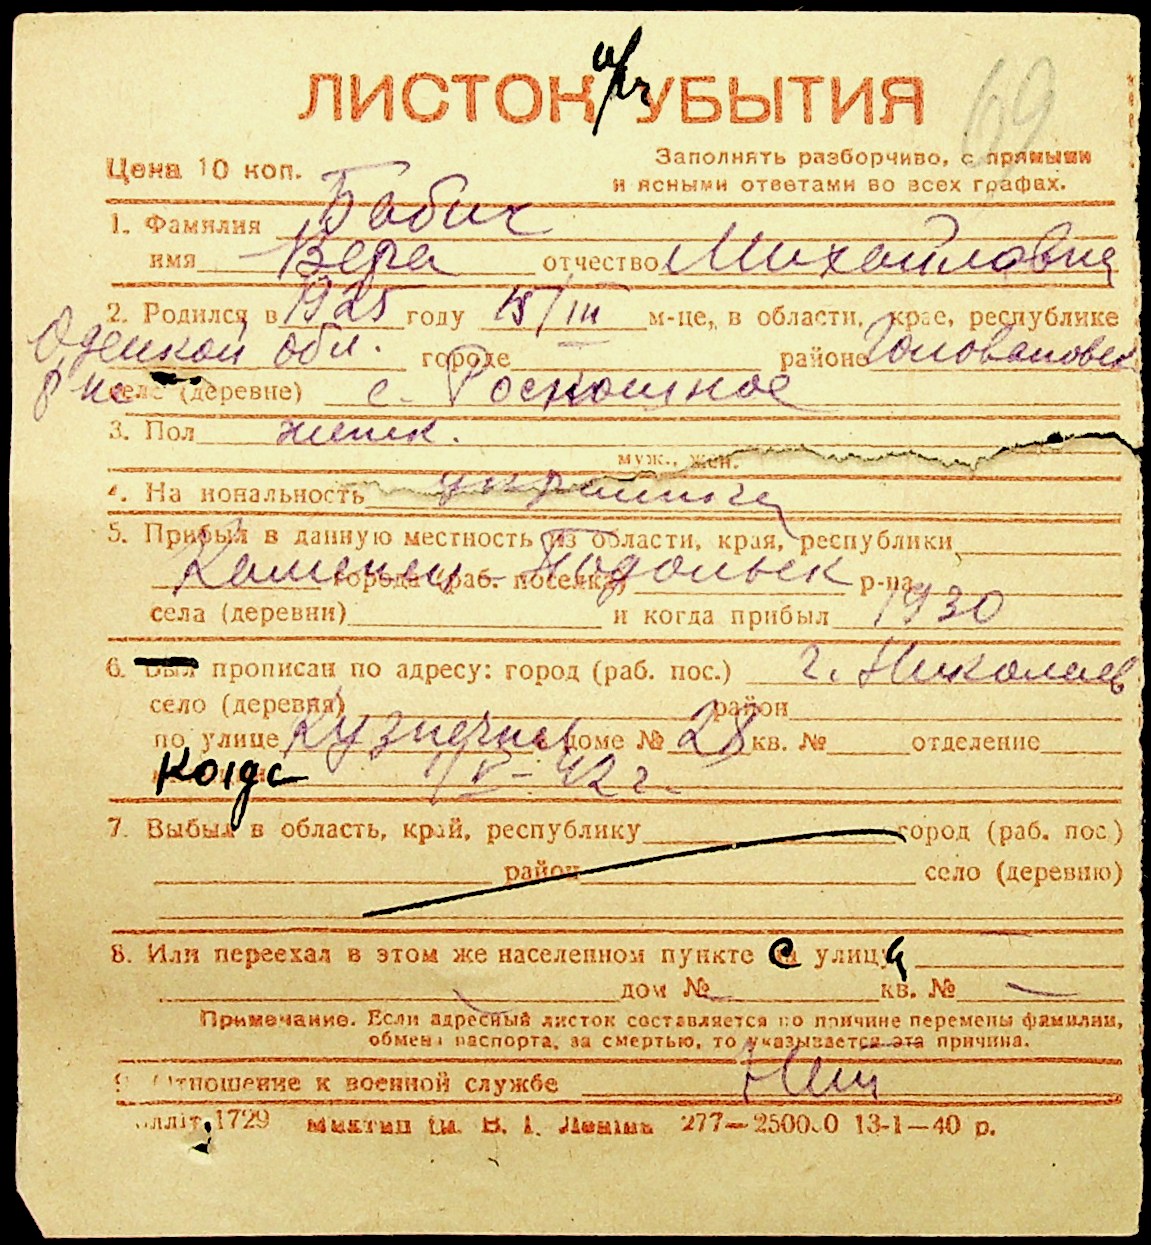 ЛИСТОК УБЫТИЯ
69
Цена 10 коп.
Заполнять разборчиво, с прямыми
и ясными ответами во всех графах.
1. Фамилия Бабич
имя Вера отчество Михайловна
2. Родился в 1925 году 15/III м-це, в области, крае, республике
Одецкой обл. городе районе Голованевск
р-не селе (деревне) с. Роскошное
3. Пол женск.
муж., жен.
4. На иональность украинка
5. Прибыл в данную местность из области, края, республики
Каменец-Подольск города (раб. поселка) р-на
села (деревни) и когда прибыл 1930
6. Был прописан по адресу: город (раб. пос.) г. Николаев
село (деревня) район
по улице Кузнечная в доме № 28 кв. № отделение
когда 1/V-42 г.
7. Выбыл в область, край, республику город (раб. пос.)
район село (деревню)
8. Или переехал в этом же населенном пункте с улицы
дом № кв. №
Примечание. Если адресный листок составляется по причине перемены фамилии,
обмена паспорта, за смертью, то указывается эта причина.
9. Отношение к военной службе Нет
ллліт 1729 им. В. І. Леніна 277—25000 13-1—40 р.